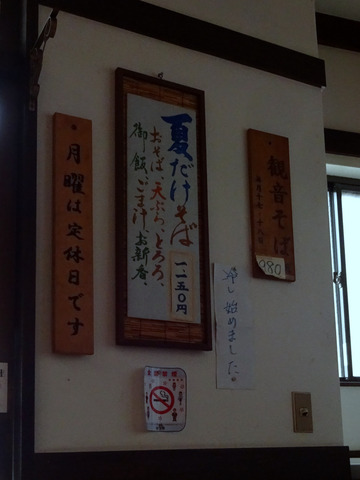 月曜は定休日です
夏だけそば
おそば、天ぷら、とろろ、
御飯、ごま汁、お新香、
一二五〇円
観音そば
980
冷し始めました